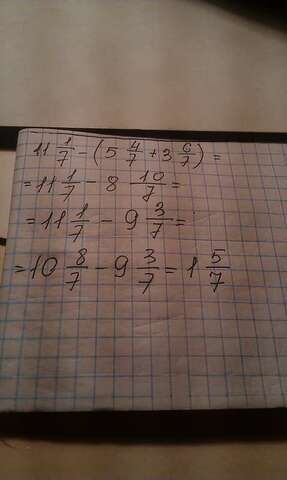 11 1/7 - (5 4/7 + 3 6/7) =
= 11 1/7 - 8 10/7 =
= 11 1/7 - 9 3/7 =
= 10 8/7 - 9 3/7 = 1 5/7